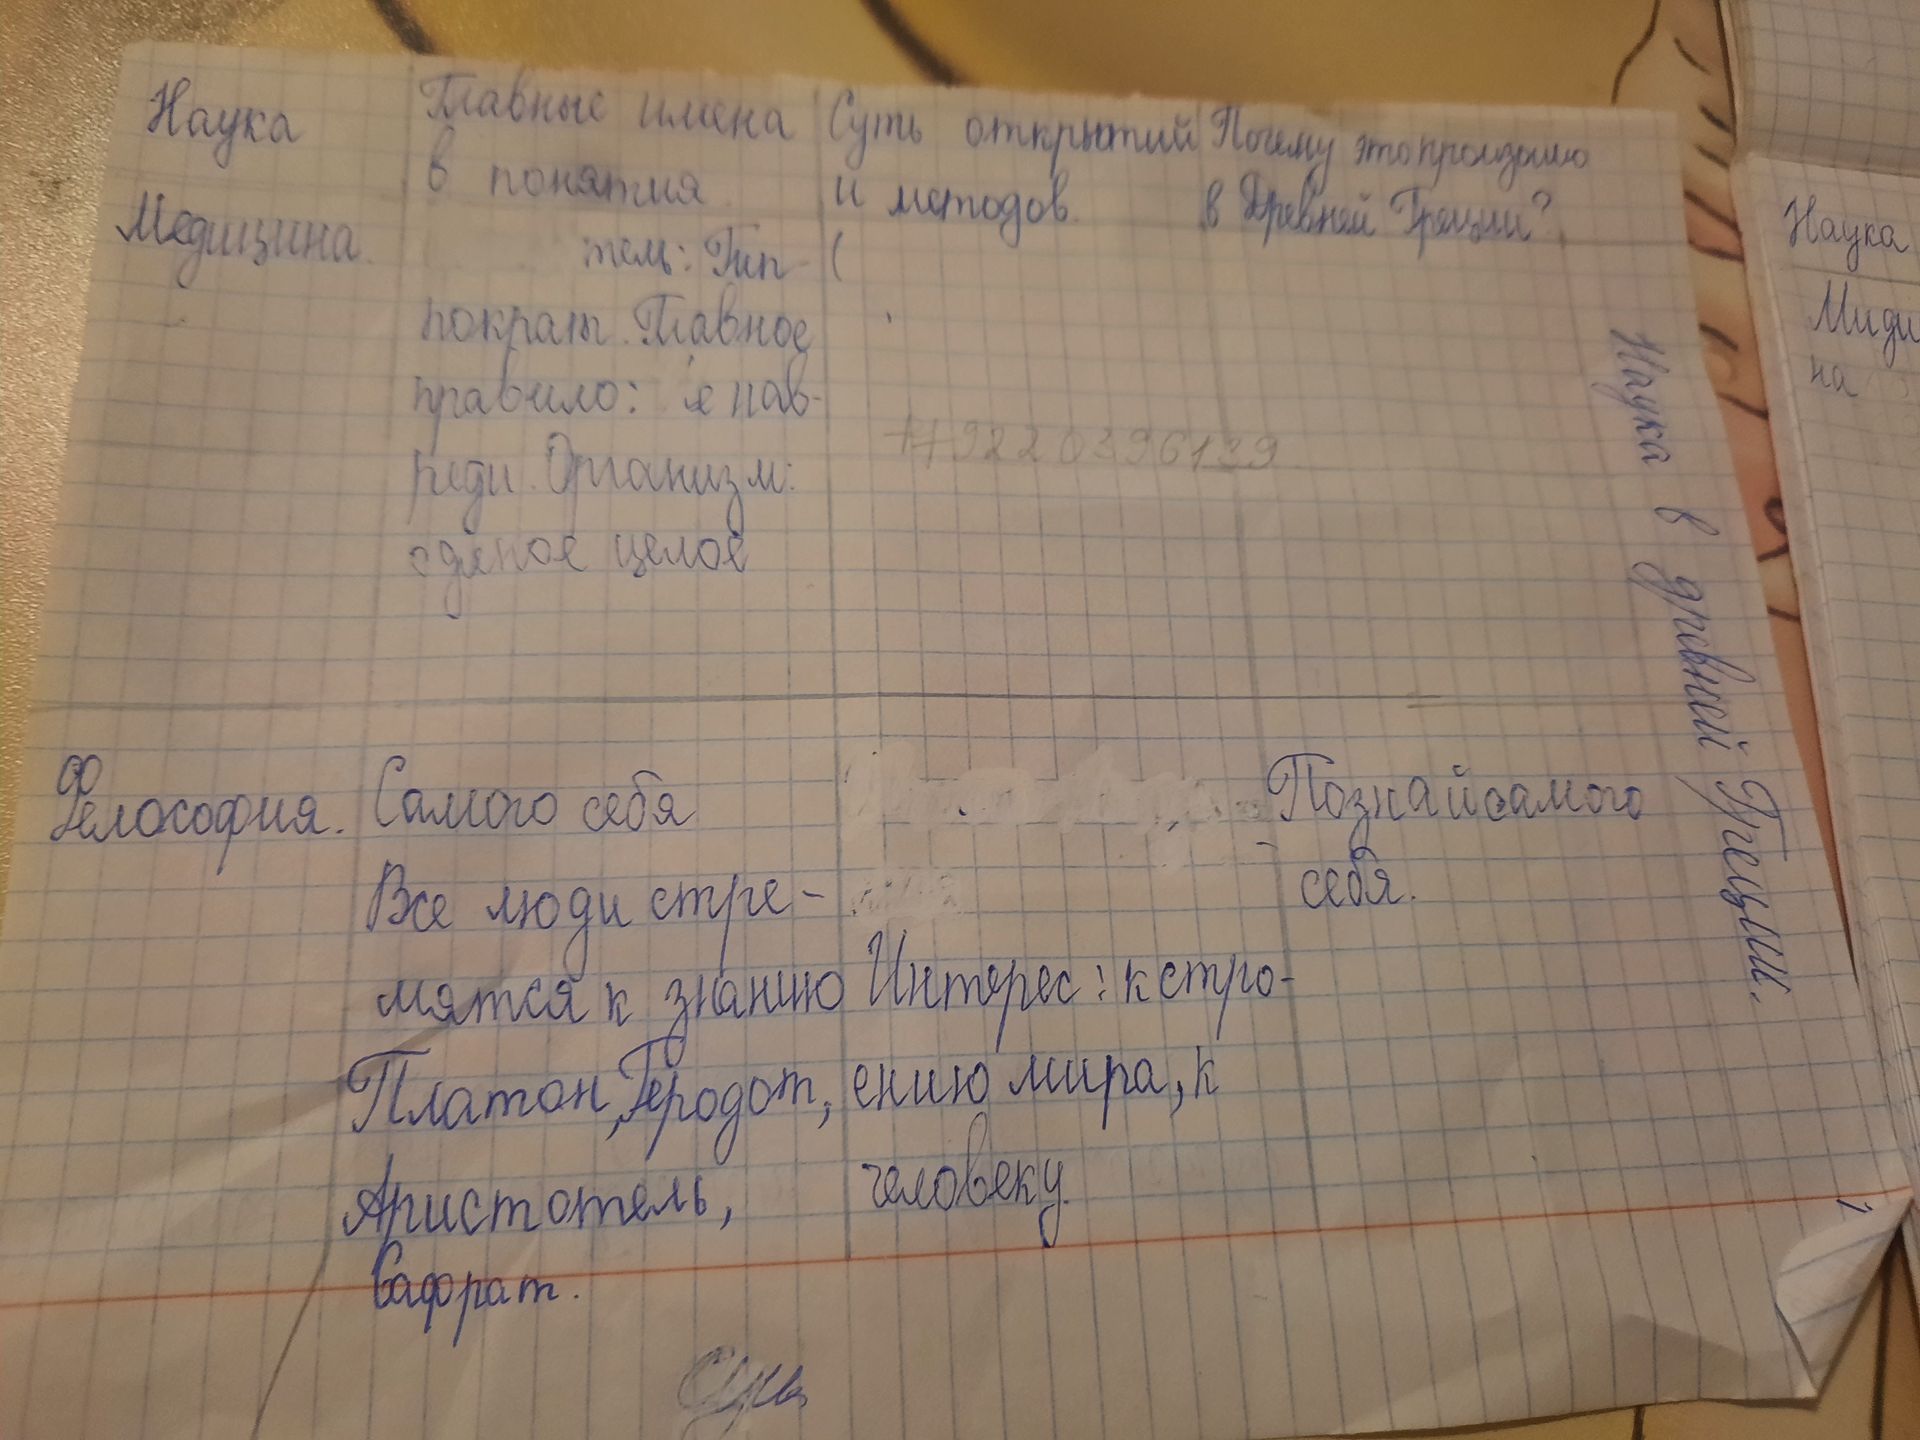 Наука
Главные имена
в понятия
Суть открытий
и методов.
Почему это произошло
в Древней Греции?
Медицина.
тель: Гип-
пократ. Главное
правило: е нав-
реди. Организм:
единое целое
Философия.
Самого себя
Все люди стре-
мятся к знанию
Платон, Геродот,
Аристотель,
Сафрат.
Интерес: к стро-
ению мира, к
человеку.
Познай самого
себя.
Наука в древней Греции.
Наука
Миди
на
1